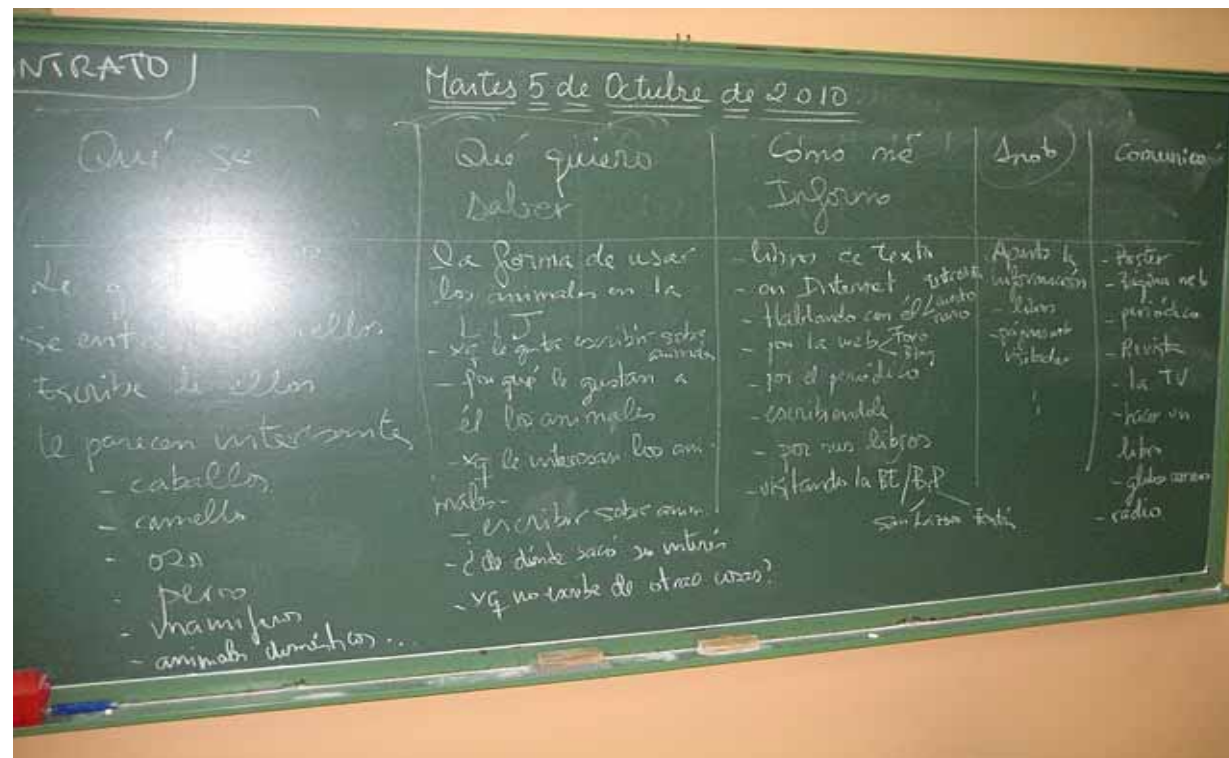 NTRATO
Martes 5 de Octubre de 2010
Qué se
Qué quiero
saber
Cómo me
Informo
Anoto
Comunico
se ent
Escribe de ellos
le parecen interesantes
- caballos
- camello
- oso
- perro
- mamíferos
- animales domésticos...
La forma de usar
los animales en la
L I J
- xq le gusta escribir sobre
animales
- por qué le gustan a
él los animales
- xq le interesan los ani
males-
- escribir sobre anim
- ¿de dónde sacó su interés
- xq no escribe de otras cosas?
- libros de texto
- en Internet
- Hablando con él
- por la web Foro
Blog
- por el periódico
- escribiendole
- por sus libros
- visitando la BE/B.P
San Lázaro
Apunto la
información
- libros
- páginas web
visitadas
- Poster
- Página web
- periódico
- Revista
- la TV
- hacer un
libro
- globo
- rádio